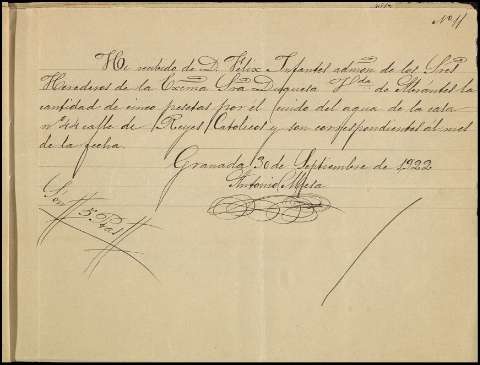 Nº 11
He recibido de D. Félix Infantes admon de los Sres
Herederos de la Excma Sra Duquesa Vda de Abrantes la
cantidad de cinco pesetas por el cuido del agua de la casa
nº 44 calle de Reyes Católicos y son correspondientes al mes
de la fecha.
Granada 30 de Septiembre de 1922
Antonio Mesa
Son 5 Ptas